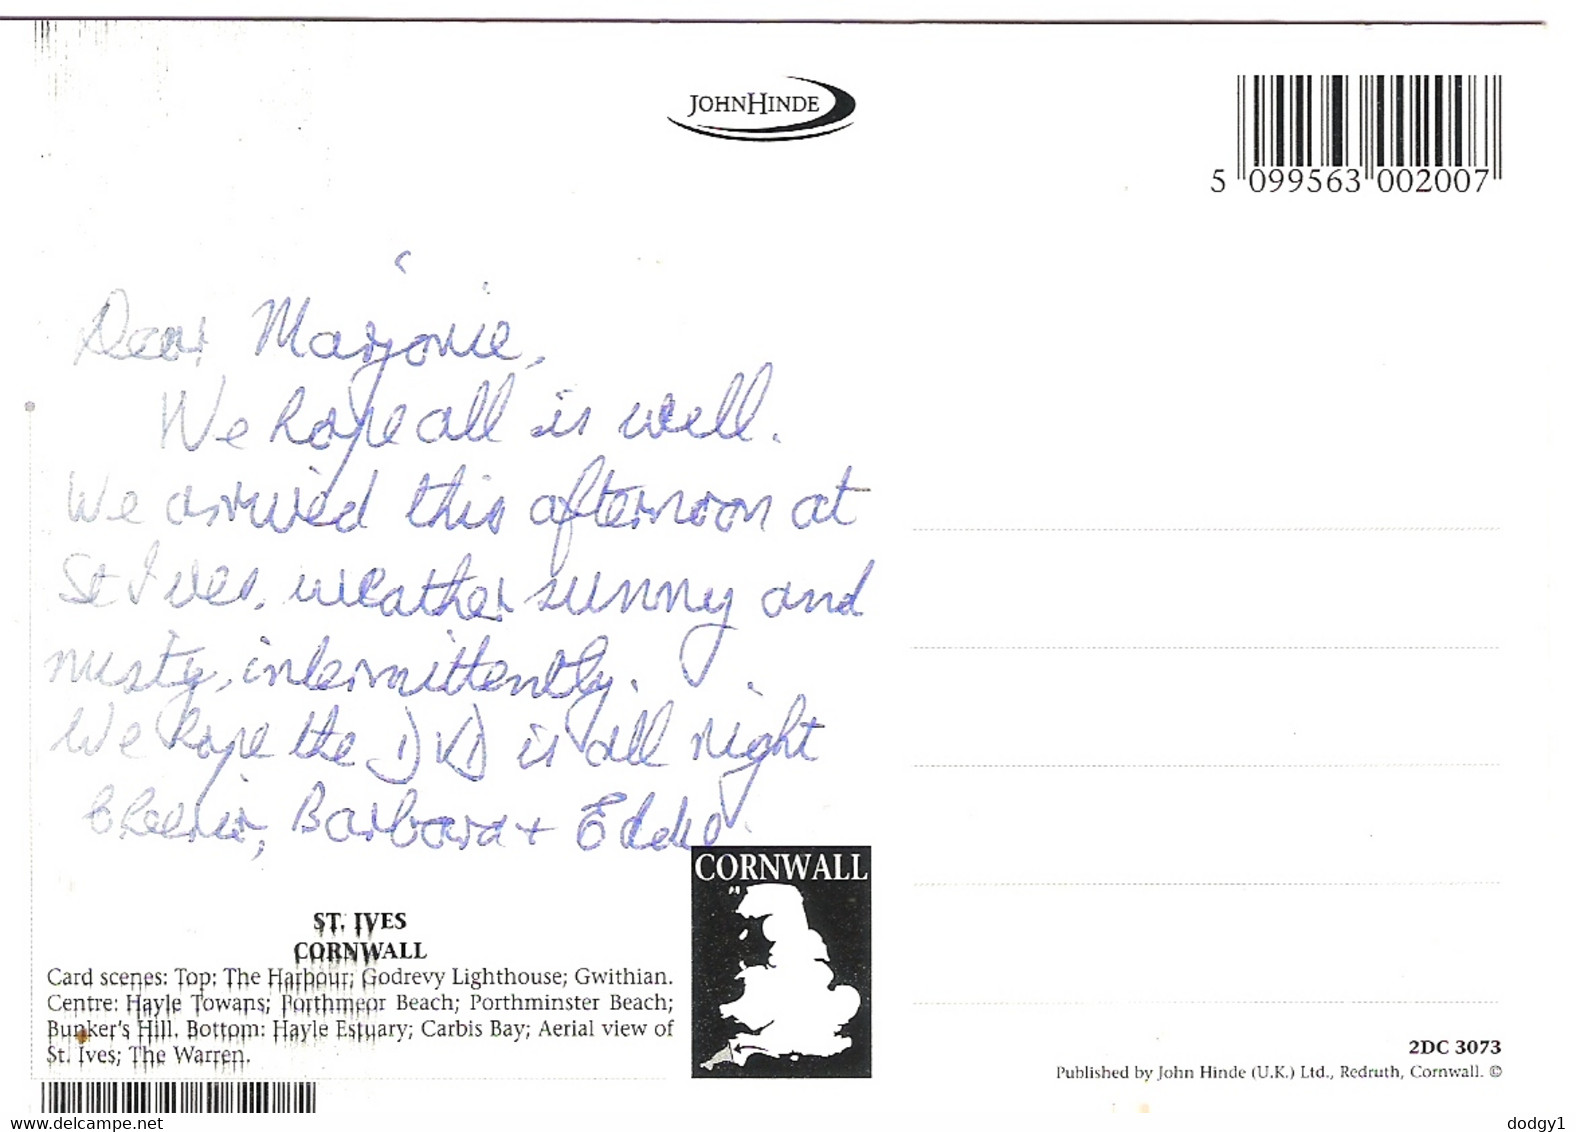 JOHNHINDE
5 099563 002007
Dear Marjorie,
We hope all is well.
We arrived this afternoon at
St Ives, weather sunny and
misty, intermittently.
We hope the DVD is all right
Cheerio, Barbara + Eddie.
CORNWALL
ST. IVES
CORNWALL
Card scenes: Top: The Harbour; Godrevy Lighthouse; Gwithian.
Centre: Hayle Towans; Porthmeor Beach; Porthminster Beach;
Bunker's Hill. Bottom: Hayle Estuary; Carbis Bay; Aerial view of
St. Ives; The Warren.
2DC 3073
Published by John Hinde (U.K.) Ltd., Redruth, Cornwall. ©
www.delcampe.net
dodgy1